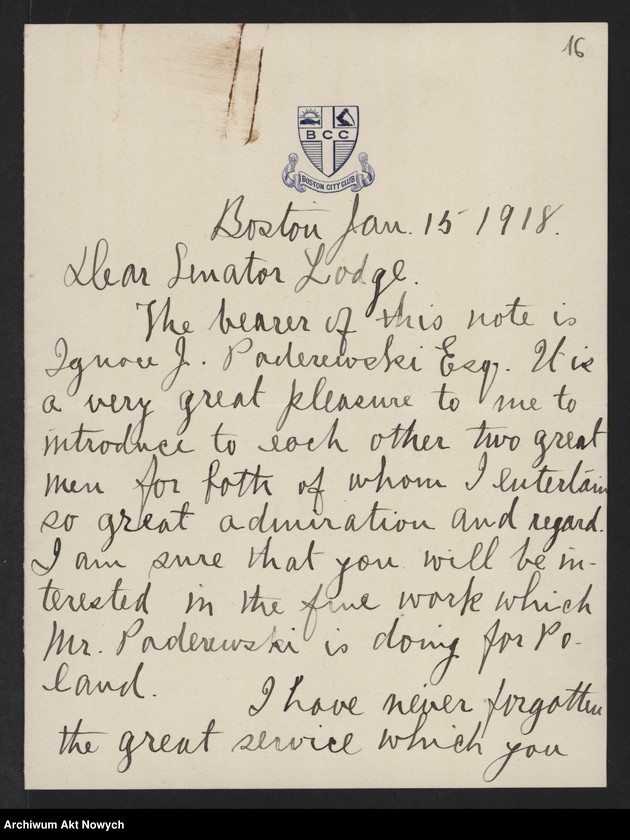 16
BCC
BOSTON CITY CLUB
Boston Jan. 15 1918.
Dear Senator Lodge.
The bearer of this note is
Ignace J. Paderewski Esq. It is
a very great pleasure to me to
introduce to each other two great
men for both of whom I entertain
so great admiration and regard.
I am sure that you will be in-
terested in the fine work which
Mr. Paderewski is doing for Po-
land.
I have never forgotten
the great service which you
Archiwum Akt Nowych